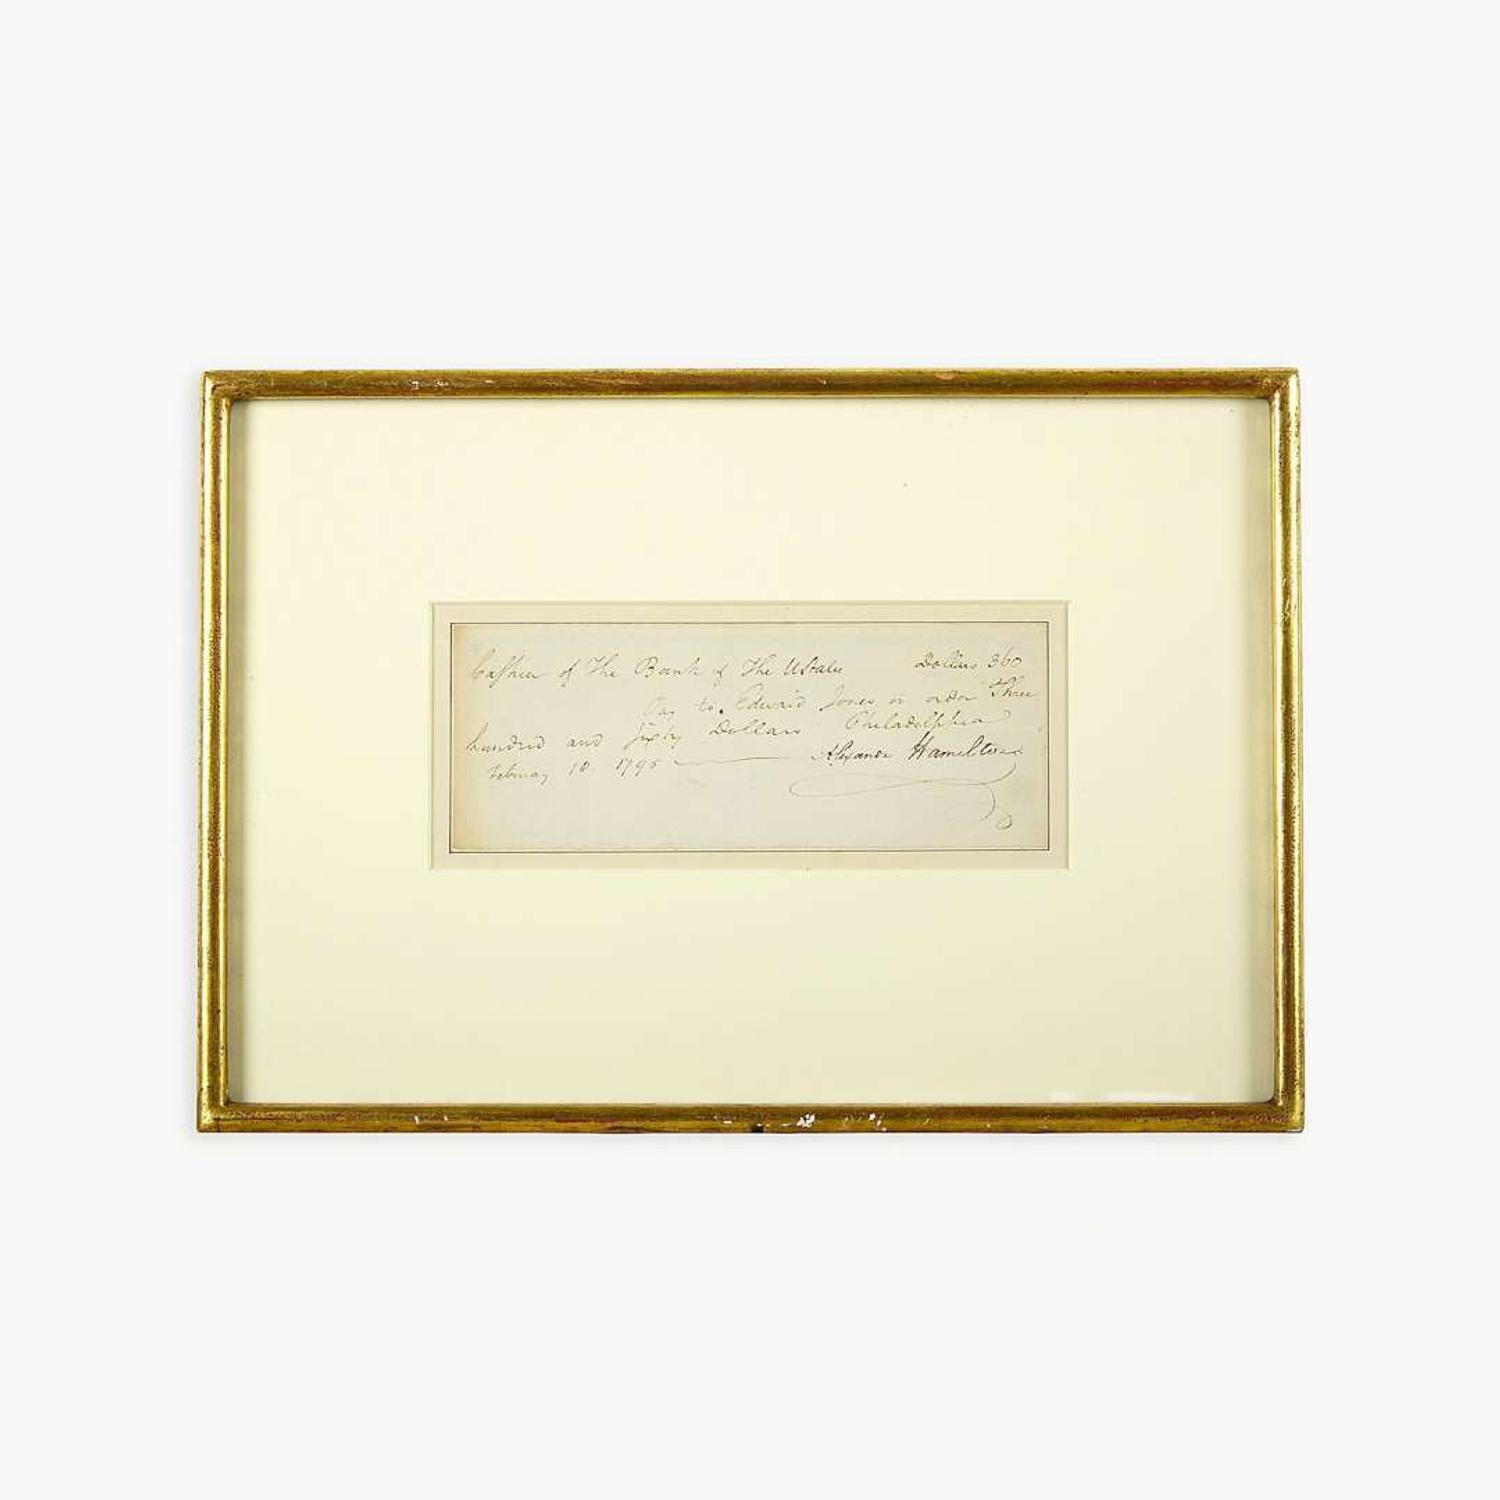 Cashier of The Bank of The UStates Dollars 360
Pay to Edward Jones or order Three
hundred and sixty Dollars Philadelphia
February 18. 1795 Alexander Hamilton